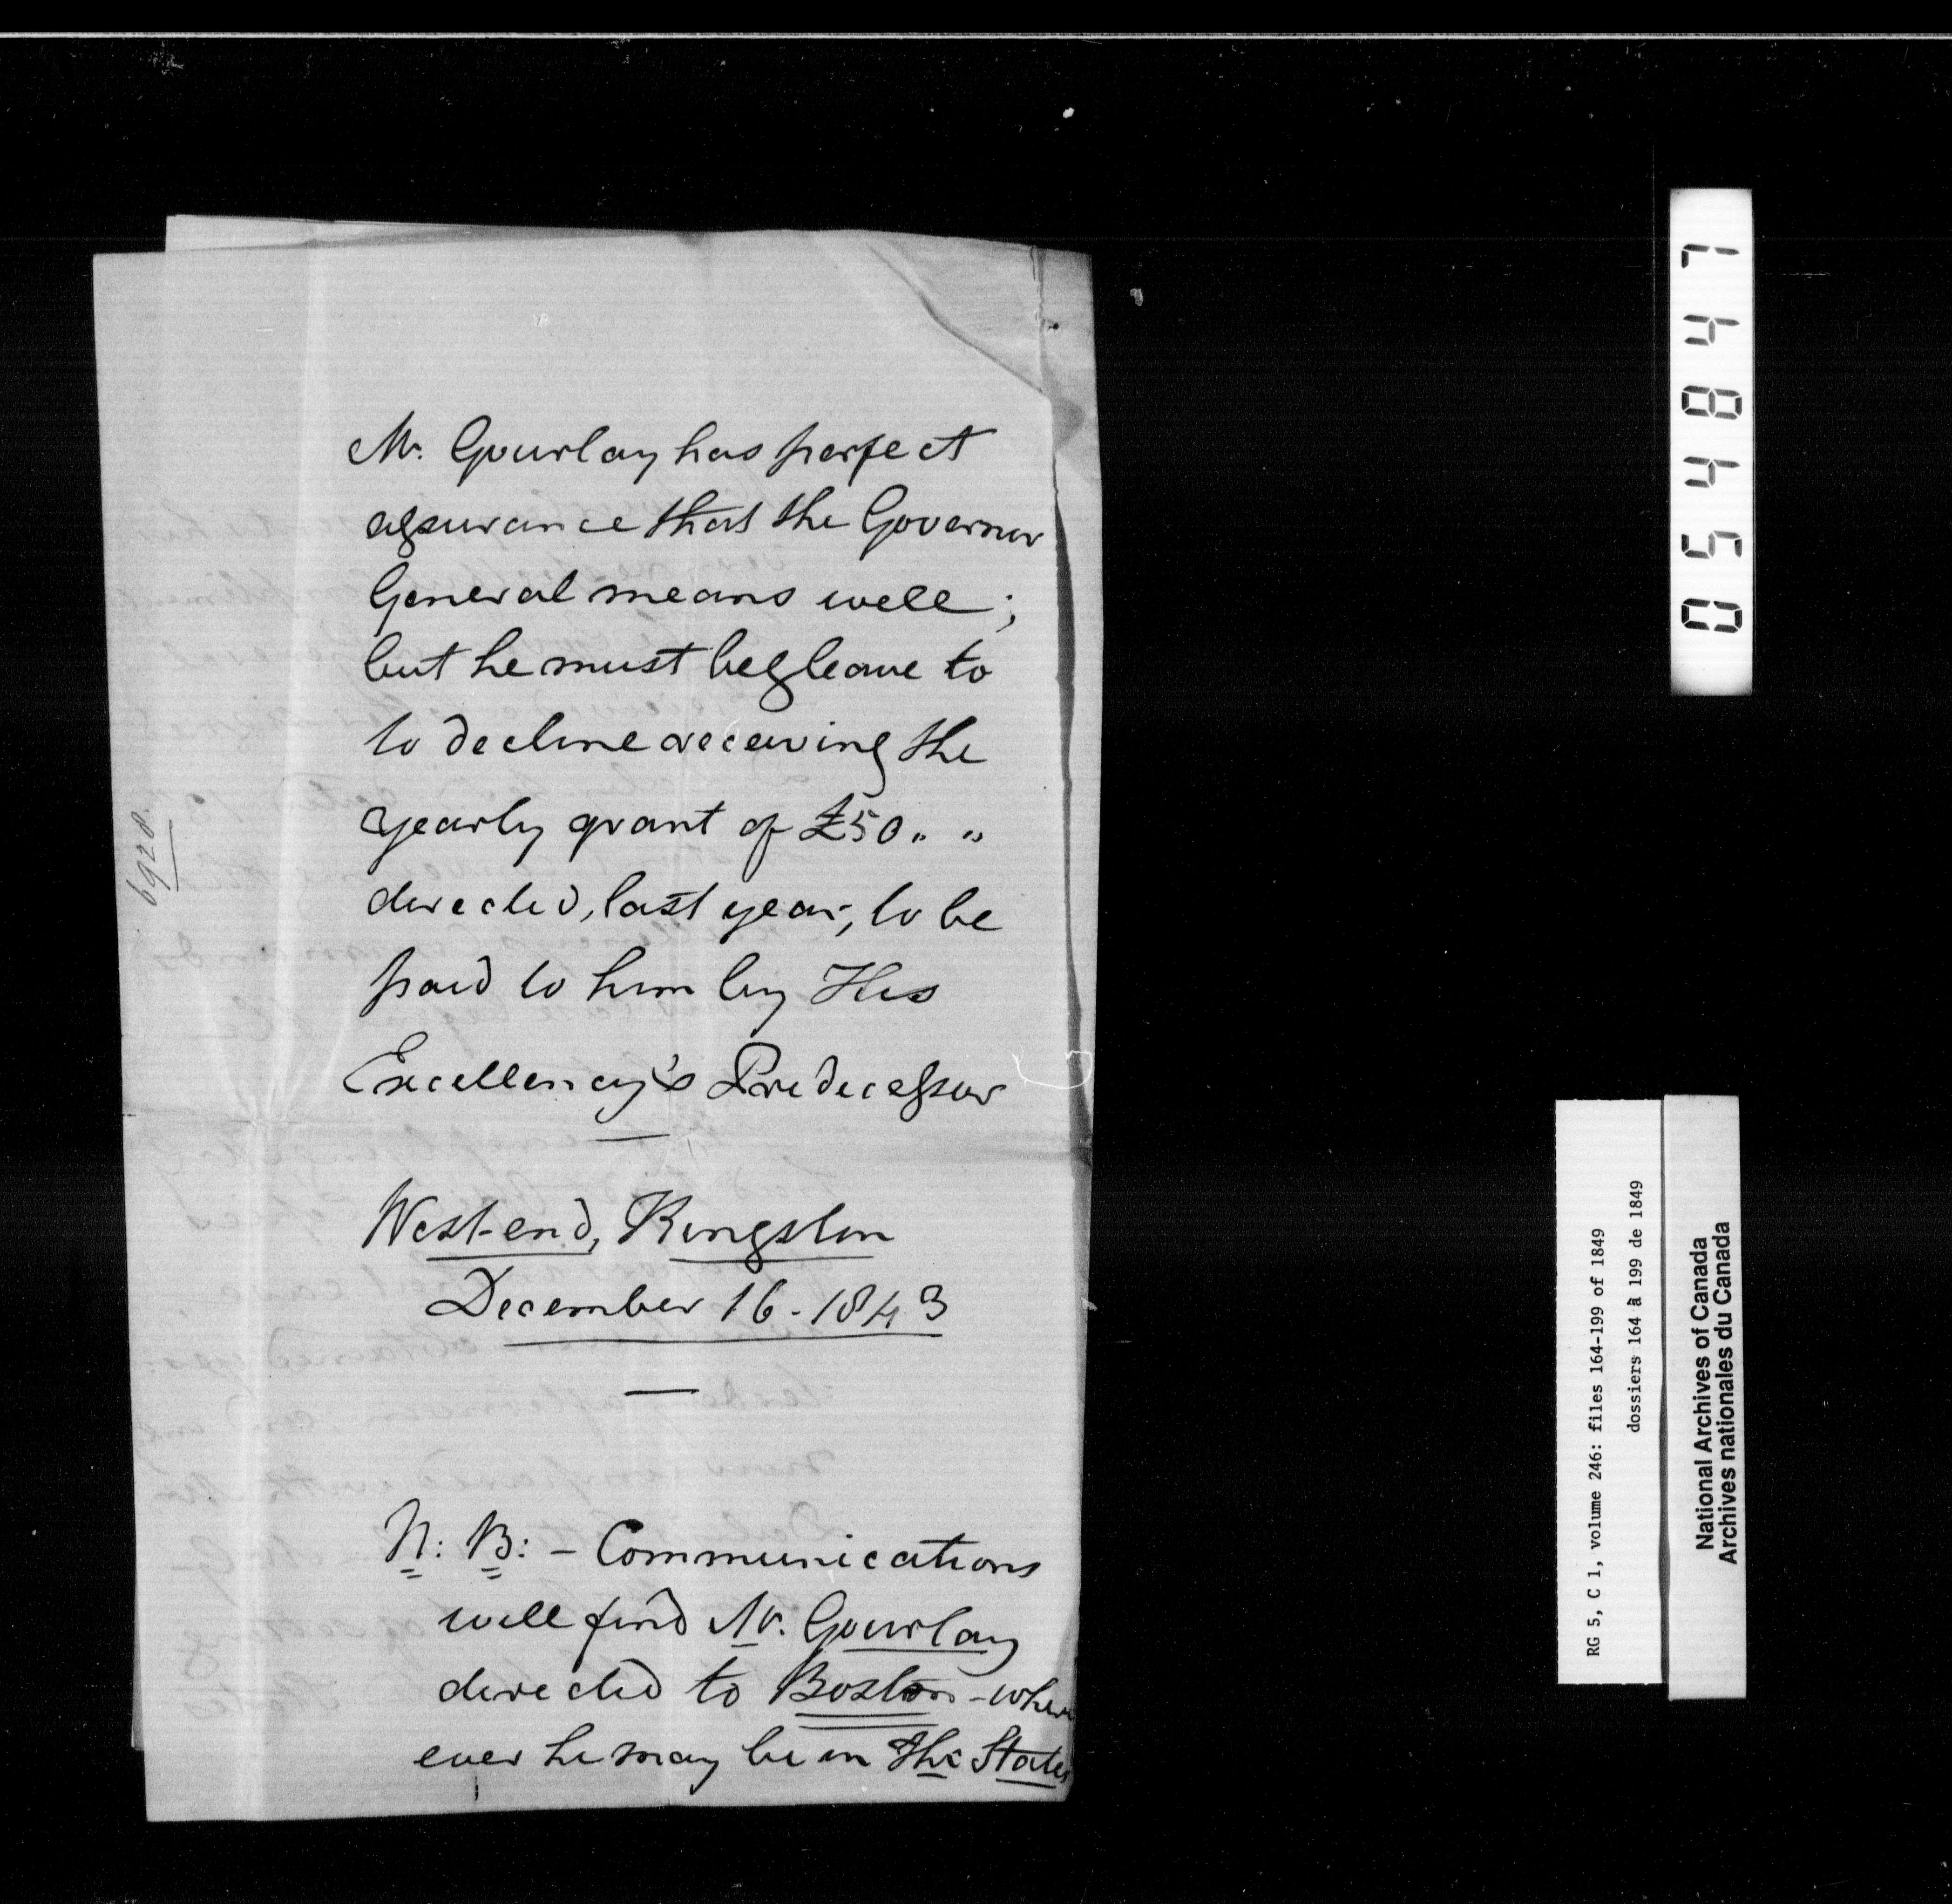 Mr. Gourlay has perfect
assurance that the Governor
General means well;
but he must beg leave to
to decline receiving the
yearly grant of £50 " "
directed, last year, to be
paid to him by His
Excellency's Predecessor
West-end, Kingston
December 16 - 1843
N: B: - Communications
will find Mr. Gourlay
directed to Boston - where
ever he may be in the States
6928
054847
RG 5, C 1, volume 246: files 164-199 of 1849
dossiers 164 à 199 de 1849
National Archives of Canada
Archives nationales du Canada